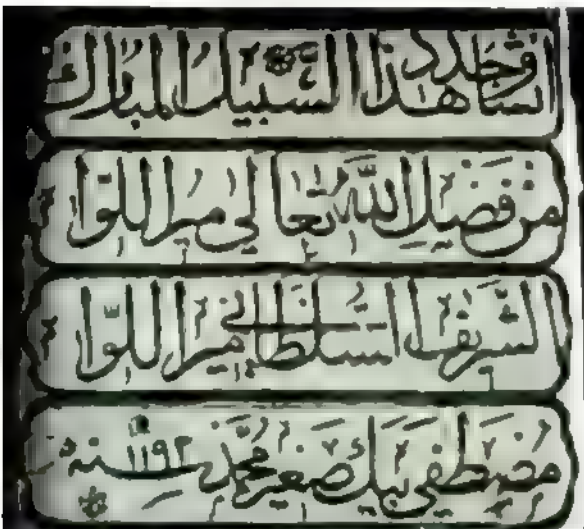 انشا وجدد هذا السبيل المبارك
من فضل الله تعالى مير اللوا
الشريف السلطاني مير اللوا
مصطفى بيك صغير محمد سنه ١١٩٢